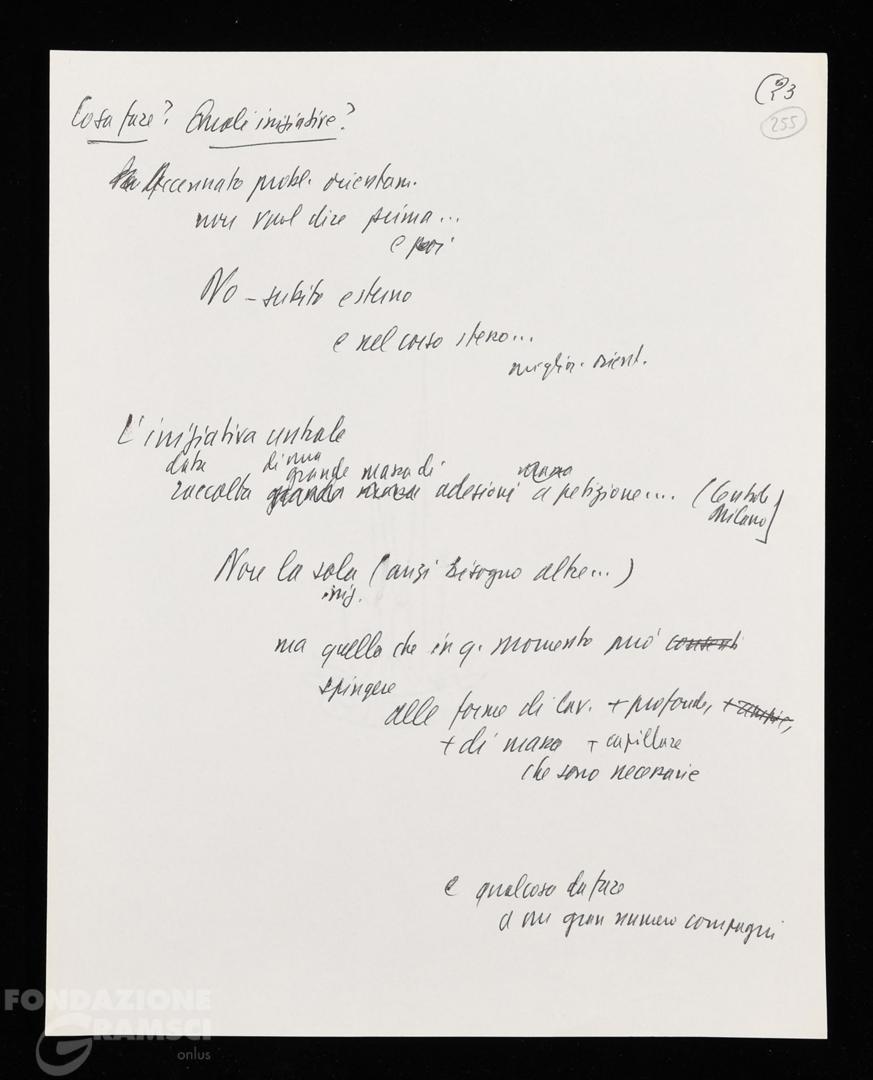 23
255
Cosa fare? Quali iniziative?
Accennato probl. orientam.
non vuol dire prima...
e poi
No - subito esterno
e nel corso stesso...
miglior. orient.
L'iniziativa centrale
data di una
grande massa di
raccolta adesioni a petizione.... (Centrale
Milano)
Non la sola (anzi bisogno altre...)
iniz.
ma quella che in q. momento può consenti
spingere
alle forme di lav. + profonde, + ampie,
+ di massa + capillare
che sono necessarie
e qualcosa da fare
a un gran numero compagni
FONDAZIONE
GRAMSCI
onlus